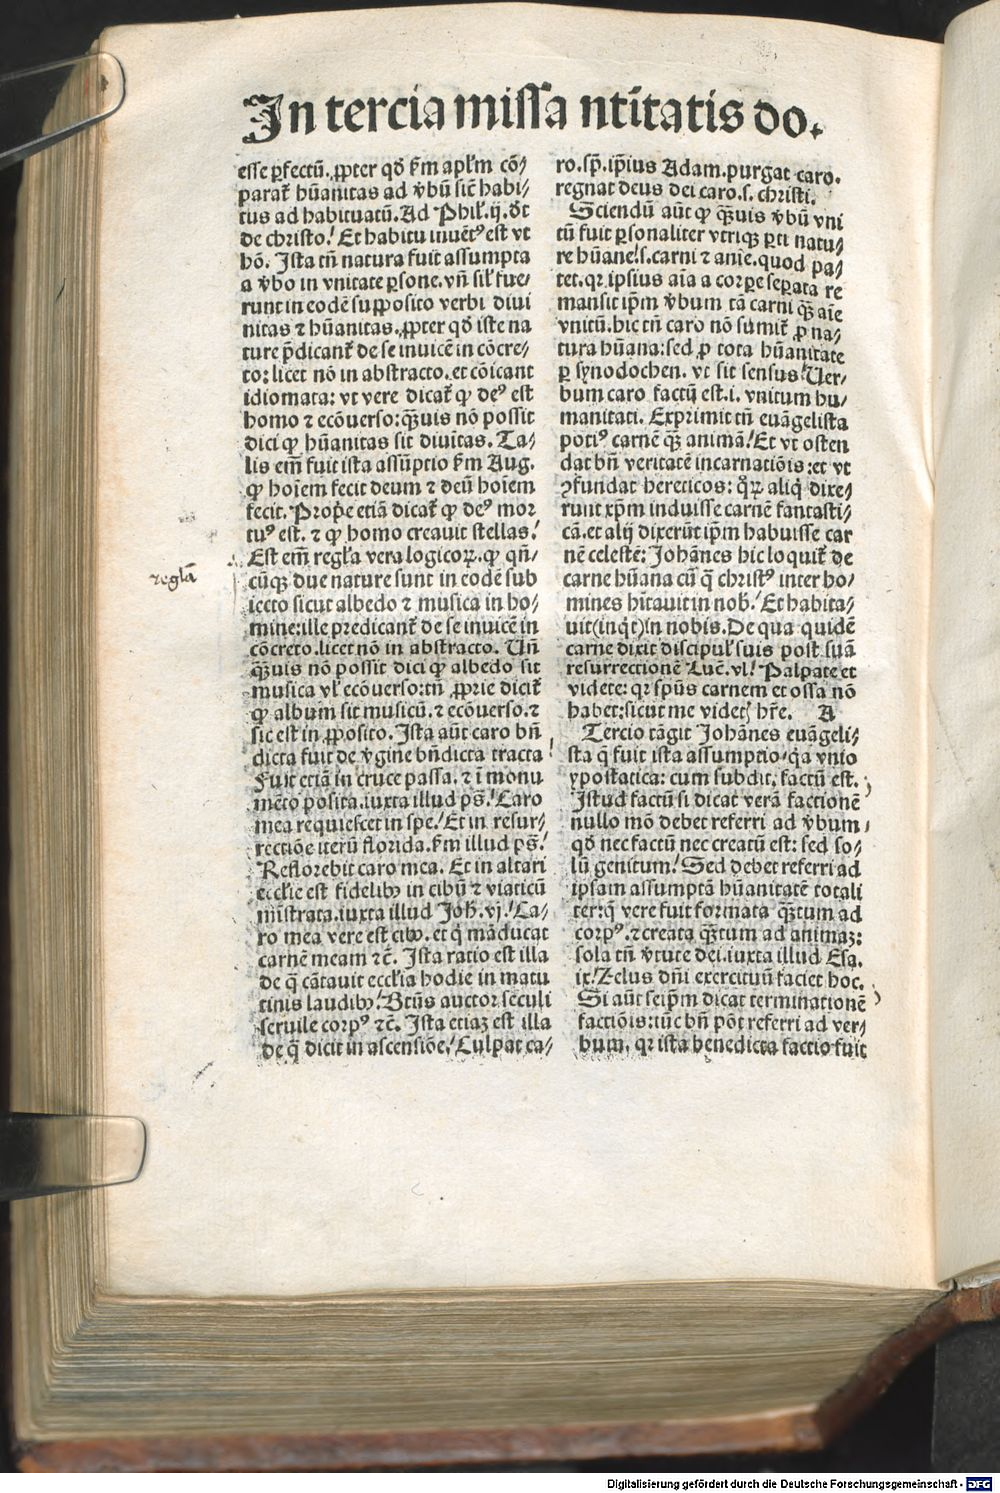 In tercia missa ntĩtatis do.
esse ꝑfectũ. ꝓpter qđ ẜm apłm cõ⸗
parat᷑ hũanitas ad ṽbũ sic̃ habi⸗
tus ad habituatũ. Ad Phil̓. ij. ðr
de christo! Et habitu inuẽtꝰ est vt
hõ. Ista tñ natura fuit assumpta
a ṽbo in vnitate ꝑsone. vñ sil̓ fue⸗
runt in eodẽ supposito verbi diui
nitas ⁊ hũanitas. ꝓpter qđ iste na
ture p̃dicant᷑ de se inuicẽ in cõcre⸗
to: licet nõ in abstracto. et cõicant
idiomata: vt vere dicat᷑ ꝙ deꝰ est
homo ⁊ ecõuerso: q̃uis nõ possit
dici ꝙ hũanitas sit diuĩtas. Ta⸗
lis em̃ fuit ista assũptio ẜm Aug.
ꝙ hoĩem fecit deum ⁊ deũ hoĩem
fecit. Prop̃e etiã dicat᷑ ꝙ deꝰ mor
tuꝰ est. ⁊ ꝙ homo creauit stellas!
Est em̃ regl̃a vera logicoꝝ. ꝙ qñ⸗
regl̃a
cũqꝫ due nature sunt in eodẽ sub
iecto sicut albedo ⁊ musica in ho⸗
mine: ille predicant᷑ de se inuicẽ in
cõcreto. licet nõ in abstracto. Uñ
q̃uis nõ possit dici ꝙ albedo sit
musica vl̓ ecõuerso: tñ ꝓprie dicit᷑
ꝙ album sit musicũ. ⁊ ecõuerso. ⁊
sic est in ꝓposito. Ista aũt caro bñ
dicta fuit de ṽgine bñdicta tracta!
Fuit etiã in cruce passa. ⁊ ĩ monu
mẽto posita. iuxta illud ps̃! Caro
mea requiescet in spe! Et in resur⸗
rectiõe iterũ florida. ẜm illud ps̃!
Reflorebit caro mea. Et in altari
eccl̃ie est fidelibꝰ in cibũ ⁊ viaticũ
mĩstrata. iuxta illud Joh̃. vj! Ca⸗
ro mea vere est cibꝰ. et q̃ mãducat
carnẽ meam ⁊c̃. Ista ratio est illa
de q̃ cãtauit eccl̃ia hodie in matu
tinis laudibꝰ! Bt̃us auctor seculi
seruile corpꝰ ⁊c̃. Ista etiaꝫ est illa
de q̃ dicit in ascensiõe! Culpat ca⸗
ro. sp̃. ip̃ius Adam. purgat caro.
regnat deus dei caro. s. christi.
Sciendũ aũt ꝙ q̃uis ṽbũ vni
tũ fuit ꝑsonaliter vtriqꝫ ꝑti natu⸗
re hũane! s. carni ⁊ aĩe. quod pa⸗
tet. qꝛ ipsius aĩa a corꝑe seꝑata re
mansit ip̃m ṽbum tã carni q̃ꝫ aĩe
vnitũ. hic tñ caro nõ sumit᷑ ꝓ na⸗
tura hũana: sed ꝓ tota hũanitate
ꝑ synodochen. vt sit sensus! Uer⸗
bum caro factũ est. i. vnitum hu⸗
manitati. Exprimit tñ euãgelista
potiꝰ carnẽ q̃ꝫ animã! Et vt osten
dat bñ veritatẽ incarnatiõis: et vt
ꝯfundat hereticos: q̊ꝝ aliq̃ dixe⸗
runt xp̃m induisse carnẽ fantasti⸗
cã. et alij dixerũt ip̃m habuisse car
nẽ celestẽ: Johãnes hic loquit᷑ de
carne hũana cũ q̃ christꝰ inter ho⸗
mines hĩtauit in nob̃! Et habita⸗
uit (inq̃t) in nobis. De qua quidẽ
carne dixit discipul̓ suis post suã
resurrectionẽ Luc̃. vl! Palpate et
videte: qꝛ sp̃us carnem et ossa nõ
habet: sicut me videtꝭ hr̃e. A
Tercio tãgit Johãnes euãgeli⸗
sta q̃ fuit ista assumptio. q̃a vnio
ypostatica: cum subdit, factũ est.
Istud factũ si dicat verã factionẽ
nullo mõ debet referri ad ṽbum,
qđ nec factũ nec creatũ est: sed so⸗
lũ genitum! Sed debet referri ad
ipsam assumptã hũanitatẽ totali
ter: q̃ vere fuit formata q̃ꝫtum ad
corpꝰ. ⁊ creata q̃ꝫtum ad animaꝫ:
sola tñ ṽtute dei. iuxta illud Esa.
ix! Zelus dñi exercituũ faciet hoc.
Si aũt seip̃m dicat terminationẽ
factiõis: tũc bñ põt referri ad ver⸗
bum. qꝛ ista benedicta factio fuit
Digitalisierung gefördert durch die Deutsche Forschungsgemeinschaft - DFG